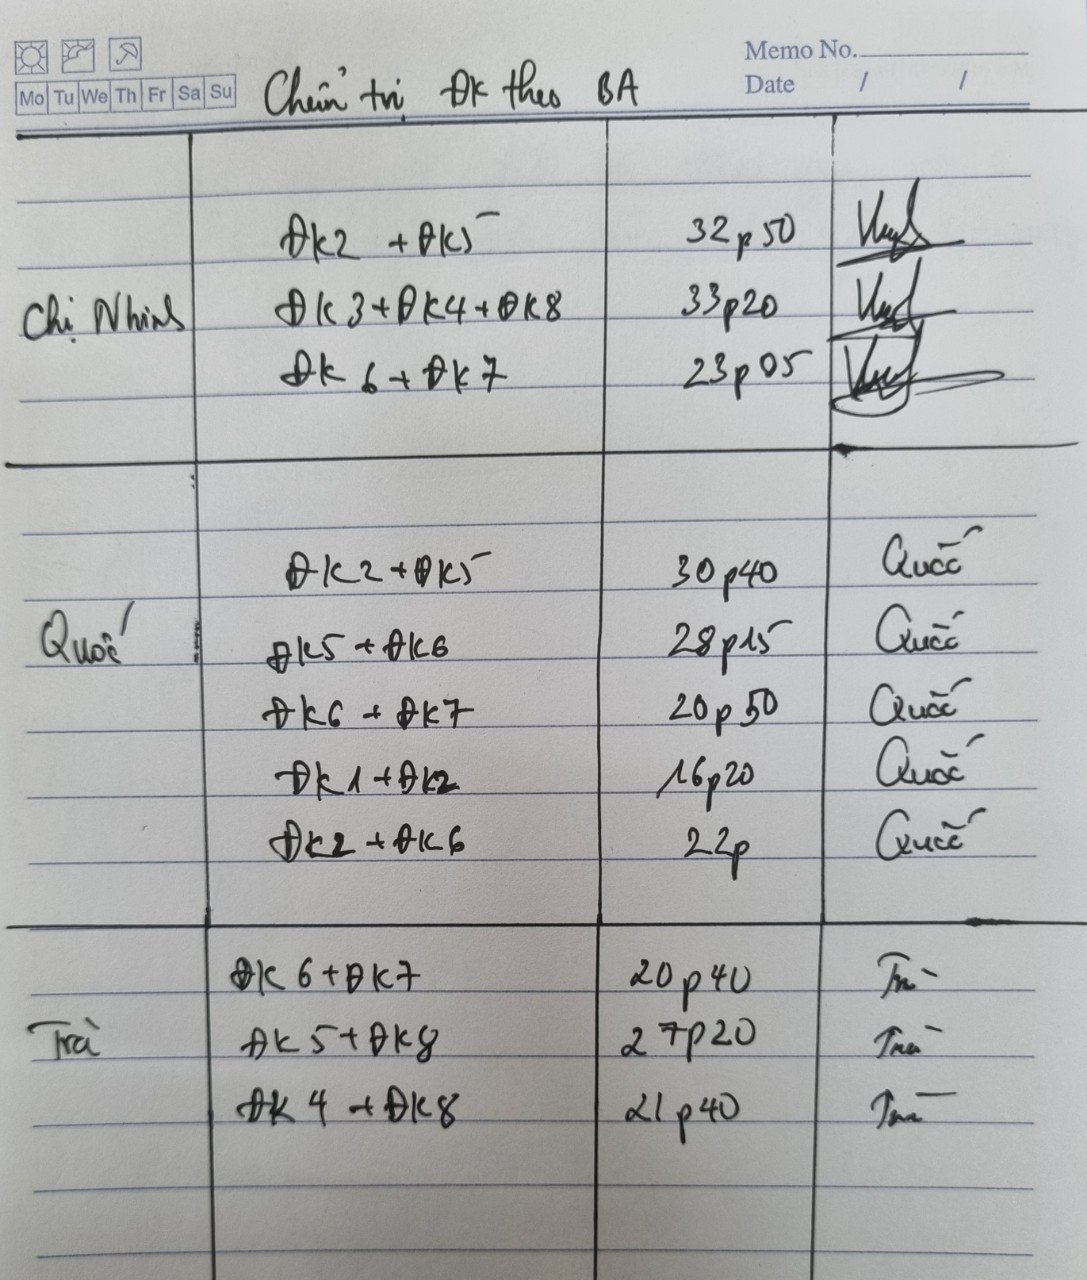 Memo No.
Mo Tu We Th Fr Sa Su
Date / /
Chuẩn trị ĐK theo BA
ĐK2 + ĐK5 32p50
Chị Nhinh ĐK3 + ĐK4 + ĐK8 33p20
ĐK6 + ĐK7 23p05
ĐK2 + ĐK5 30p40 Quốc
Quốc ĐK5 + ĐK6 28p15 Quốc
ĐK6 + ĐK7 20p50 Quốc
ĐK1 + ĐK2 16p20 Quốc
ĐK2 + ĐK6 22p Quốc
ĐK6 + ĐK7 20p40 Trà
Trà ĐK5 + ĐK8 27p20 Trà
ĐK4 + ĐK8 21p40 Trà